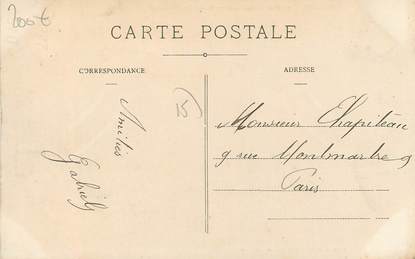 200€
CARTE POSTALE
CORRESPONDANCE
ADRESSE
15
Amitiés
Gabriel
Monsieur Chapiteau
9 rue Montmartre 9
Paris